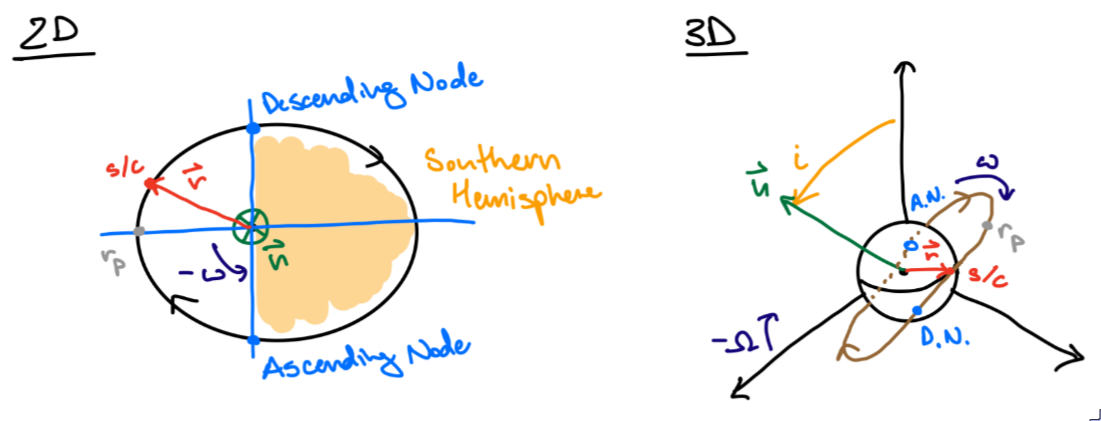 2D
Descending Node
s/c
r
Southern
Hemisphere
r_p
-ω
n
Ascending Node
3D
i
n
ω
A.N.
r_p
r
s/c
D.N.
-Ω